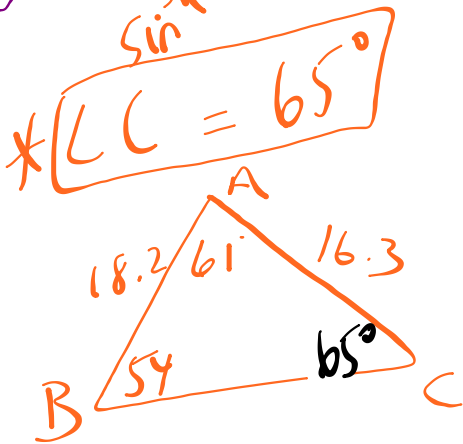 sin
*∠C = 65°
A
18.2
61°
16.3
B
54
65°
C